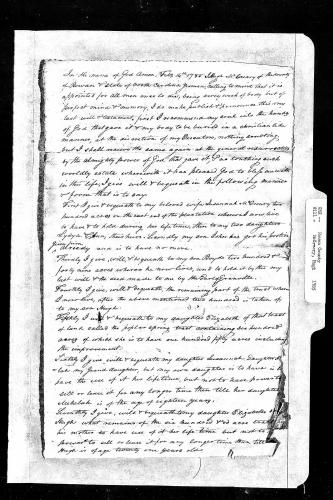 In the name of God Amen. Feby 14th 1785 I Hugh McCrary of the County
of Rowan & State of North Carolina yeoman, calling to mind that it is
appointed for all men once to die, being very weak of body but of
perfect mind & memory, I do make publish & pronounce this my
last will & testament, first I recommend my soul into the hands
of God that gave it & my body to be buried in a christian like
manner, at the discretion of my Executors, nothing doubting,
but I shall receive the same again at the general resurrection
by the almighty power of God that gave it, & as touching such
worldly estate wherewith it has pleased God to bless me with
in this life, I give will & bequeath in the following manner
& form that is to say.
First I give & bequeath to my beloved wife Susannah McCrary two
hundred acres on the east end of the plantation whereon I now live
to have & to hold during her life time, then to my two daughters
Lydia & then their heirs. Secondly my son John has got his portion
given him
already and is to have no more.
Thirdly I give, will, & bequeath to my son Boyd two hundred &
forty nine acres whereon he now lives, and to hold it by this my
last will & the deed made to me by the
Fourthly I give, will & bequeath, the remaining part of the tract where
I now live, after the above mentioned two hundred is taken off
to my son Hugh.
Fifthly I will & bequeath to my daughter Elizabeth of that tract
of land called the spring tract containing six hundred
acres of which she is to have one hundred fifty acres including
the improvement.
Sixthly I give will & bequeath my daughter Susannah's daughter
my Grand daughter, but my own daughter is to have it to
have the use of it her lifetime, but not to have power to
sell or lose it for any longer time than till her daughter
is of the age of eighteen years.
Seventhly I give, will & bequeath to my daughter Elizabeth's
Hugh what remains of the six hundred & acre tract
his mother to have use of it her life time but not to
power to sell or lose it for any longer time then till
Hugh is of age twenty one years old.
Rowan County
McCrary, Hugh
1785